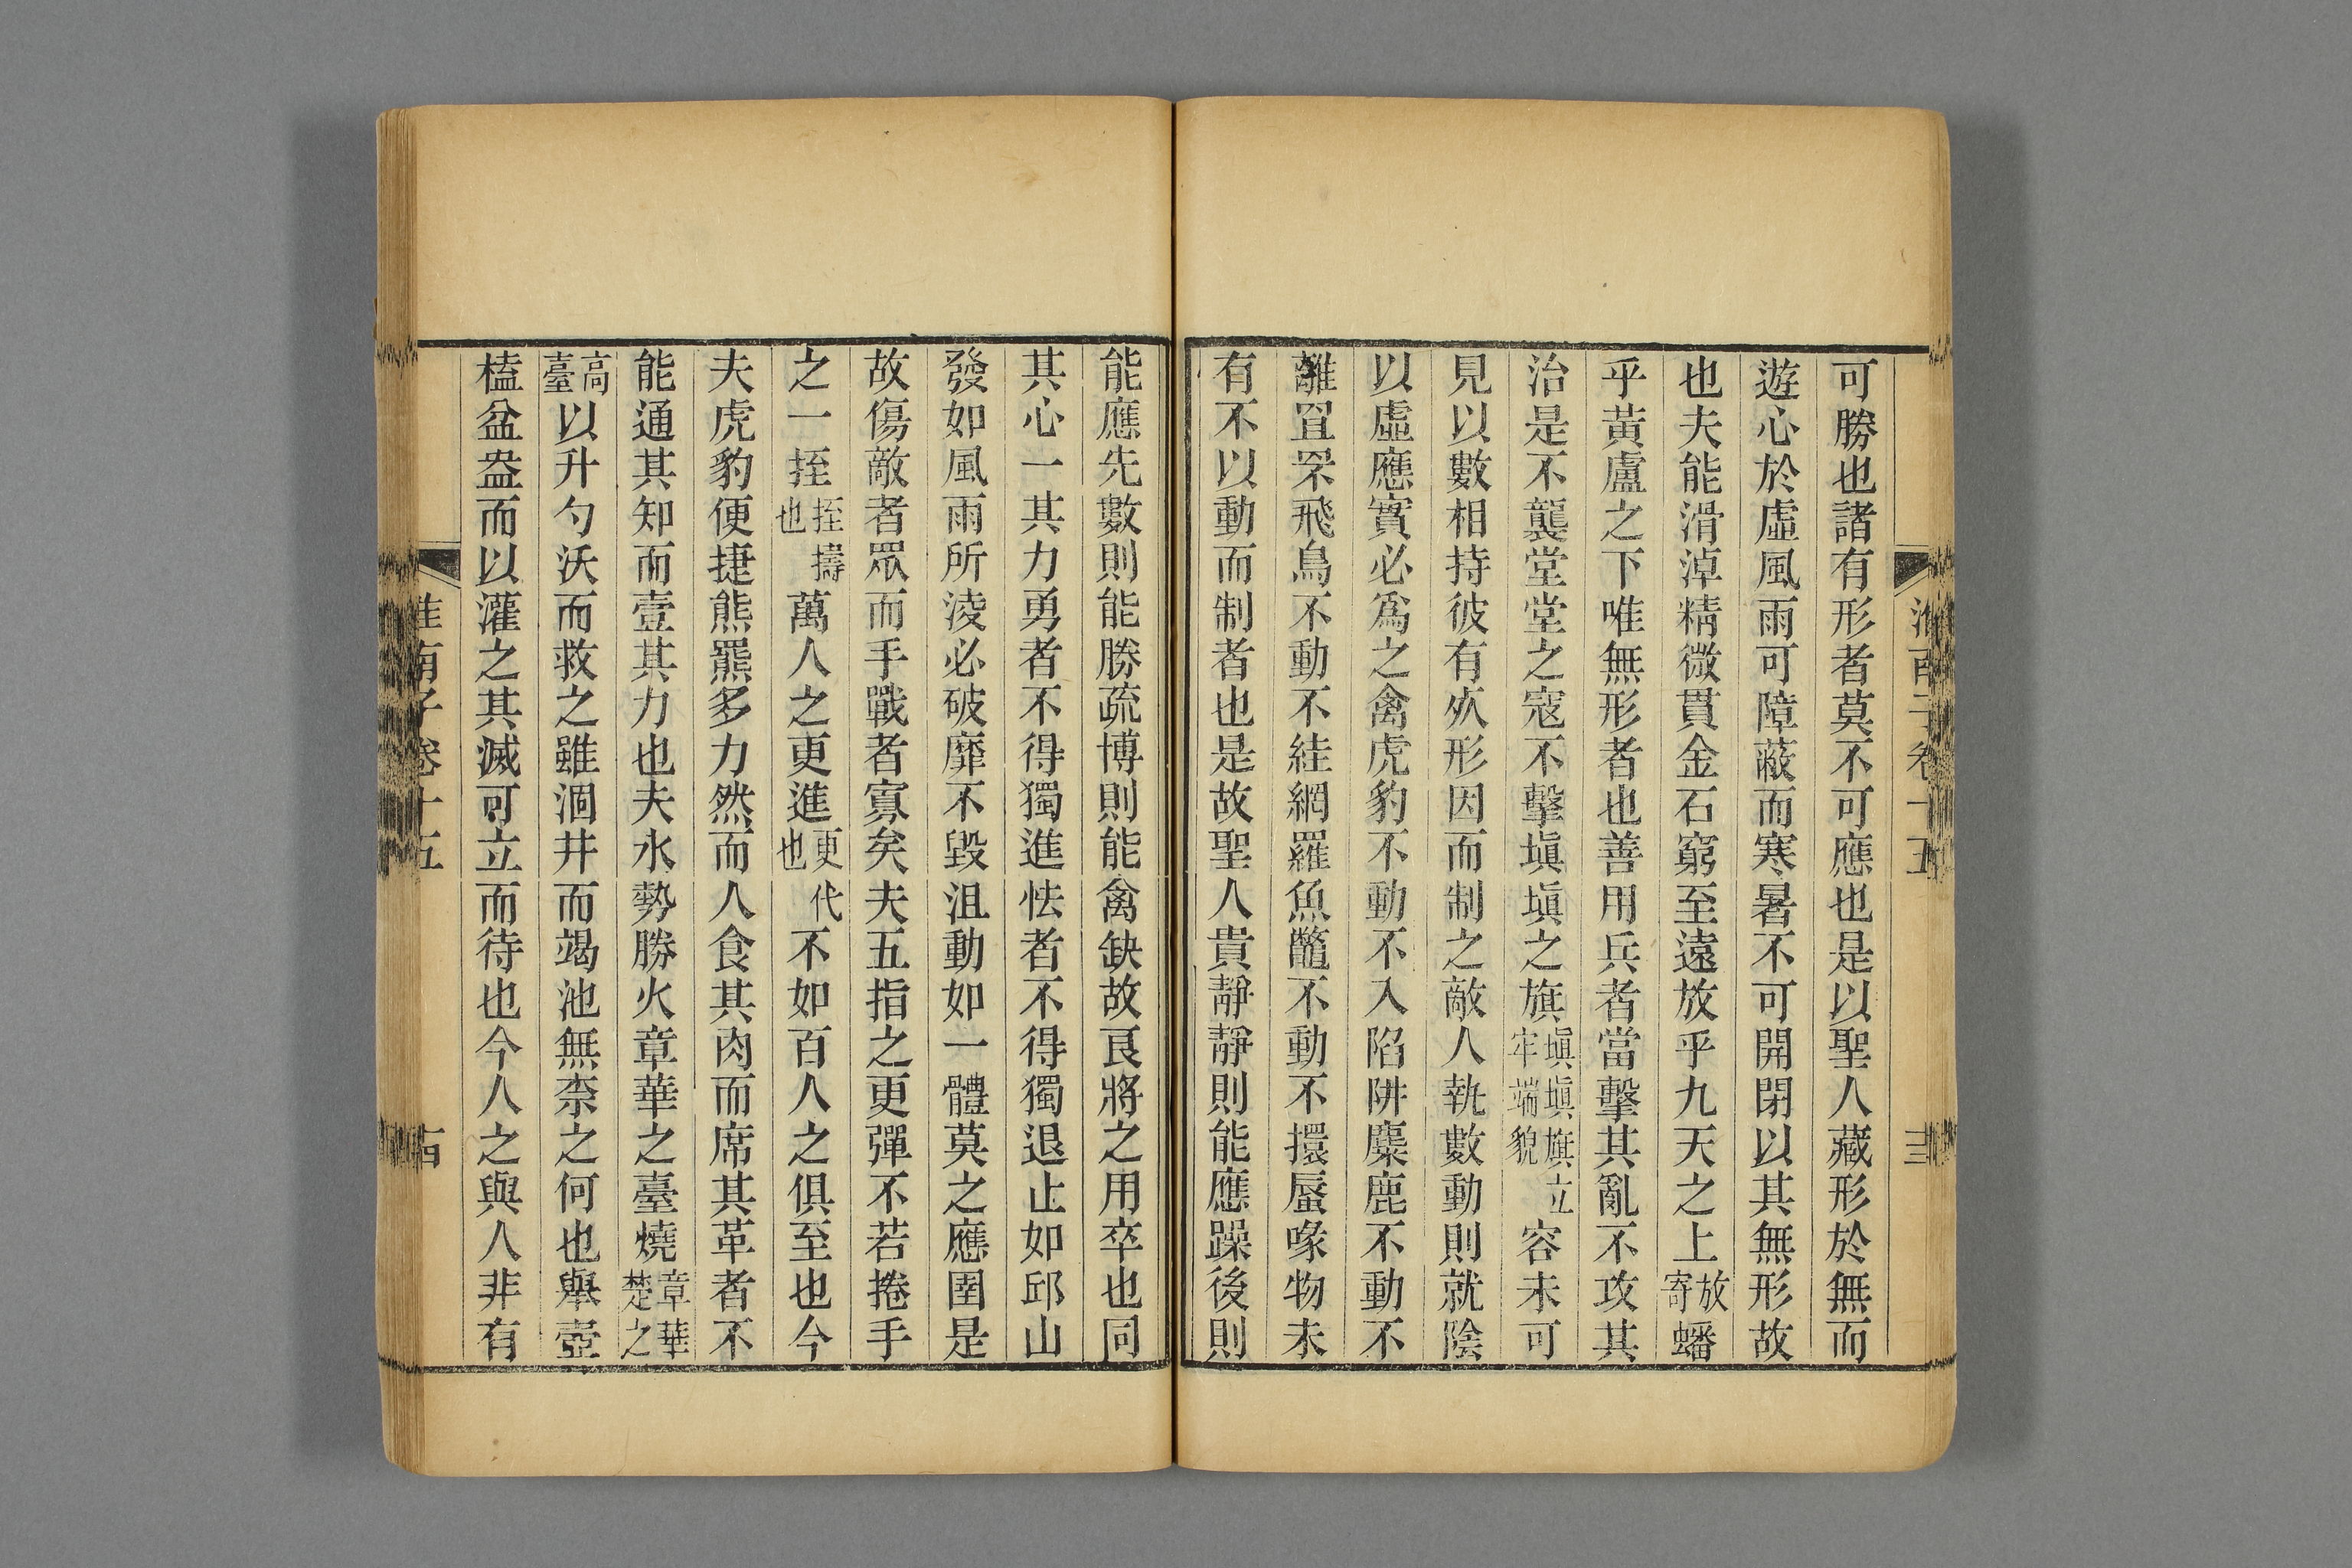 可勝也諸有形者莫不可應也是以聖人藏形於無而
遊心於虛風雨可障蔽而寒暑不可開閉以其無形故
也夫能滑淖精微貫金石窮至遠放乎九天之上放寄蟠
乎黃盧之下唯無形者也善用兵者當擊其亂不攻其
治是不襲堂堂之寇不擊塡塡之旗塡塡旗立牢端貌容未可
見以數相持彼有㱾形因而制之敵人執數動則就陰
以虛應實必爲之禽虎豹不動不入陷阱麋鹿不動不
離罝罘飛鳥不動不絓網羅魚鼈不動不擐蜃喙物未
有不以動而制者也是故聖人貴靜靜則能應躁後則
能應先數則能勝疏博則能禽缺故良將之用卒也同
其心一其力勇者不得獨進怯者不得獨退止如邱山
發如風雨所淩必破靡不毀沮動如一體莫之應圉是
故傷敵者眾而手戰者寡矣夫五指之更彈不若捲手
之一挃挃擣也萬人之更進更代也不如百人之俱至也今
夫虎豹便捷熊羆多力然而人食其肉而席其革者不
能通其知而壹其力也夫水勢勝火章華之臺燒章華楚之
高臺以升勺沃而救之雖涸井而竭池無柰之何也舉壺
榼盆盎而以灌之其滅可立而待也今人之與人非有
淮南子卷十五